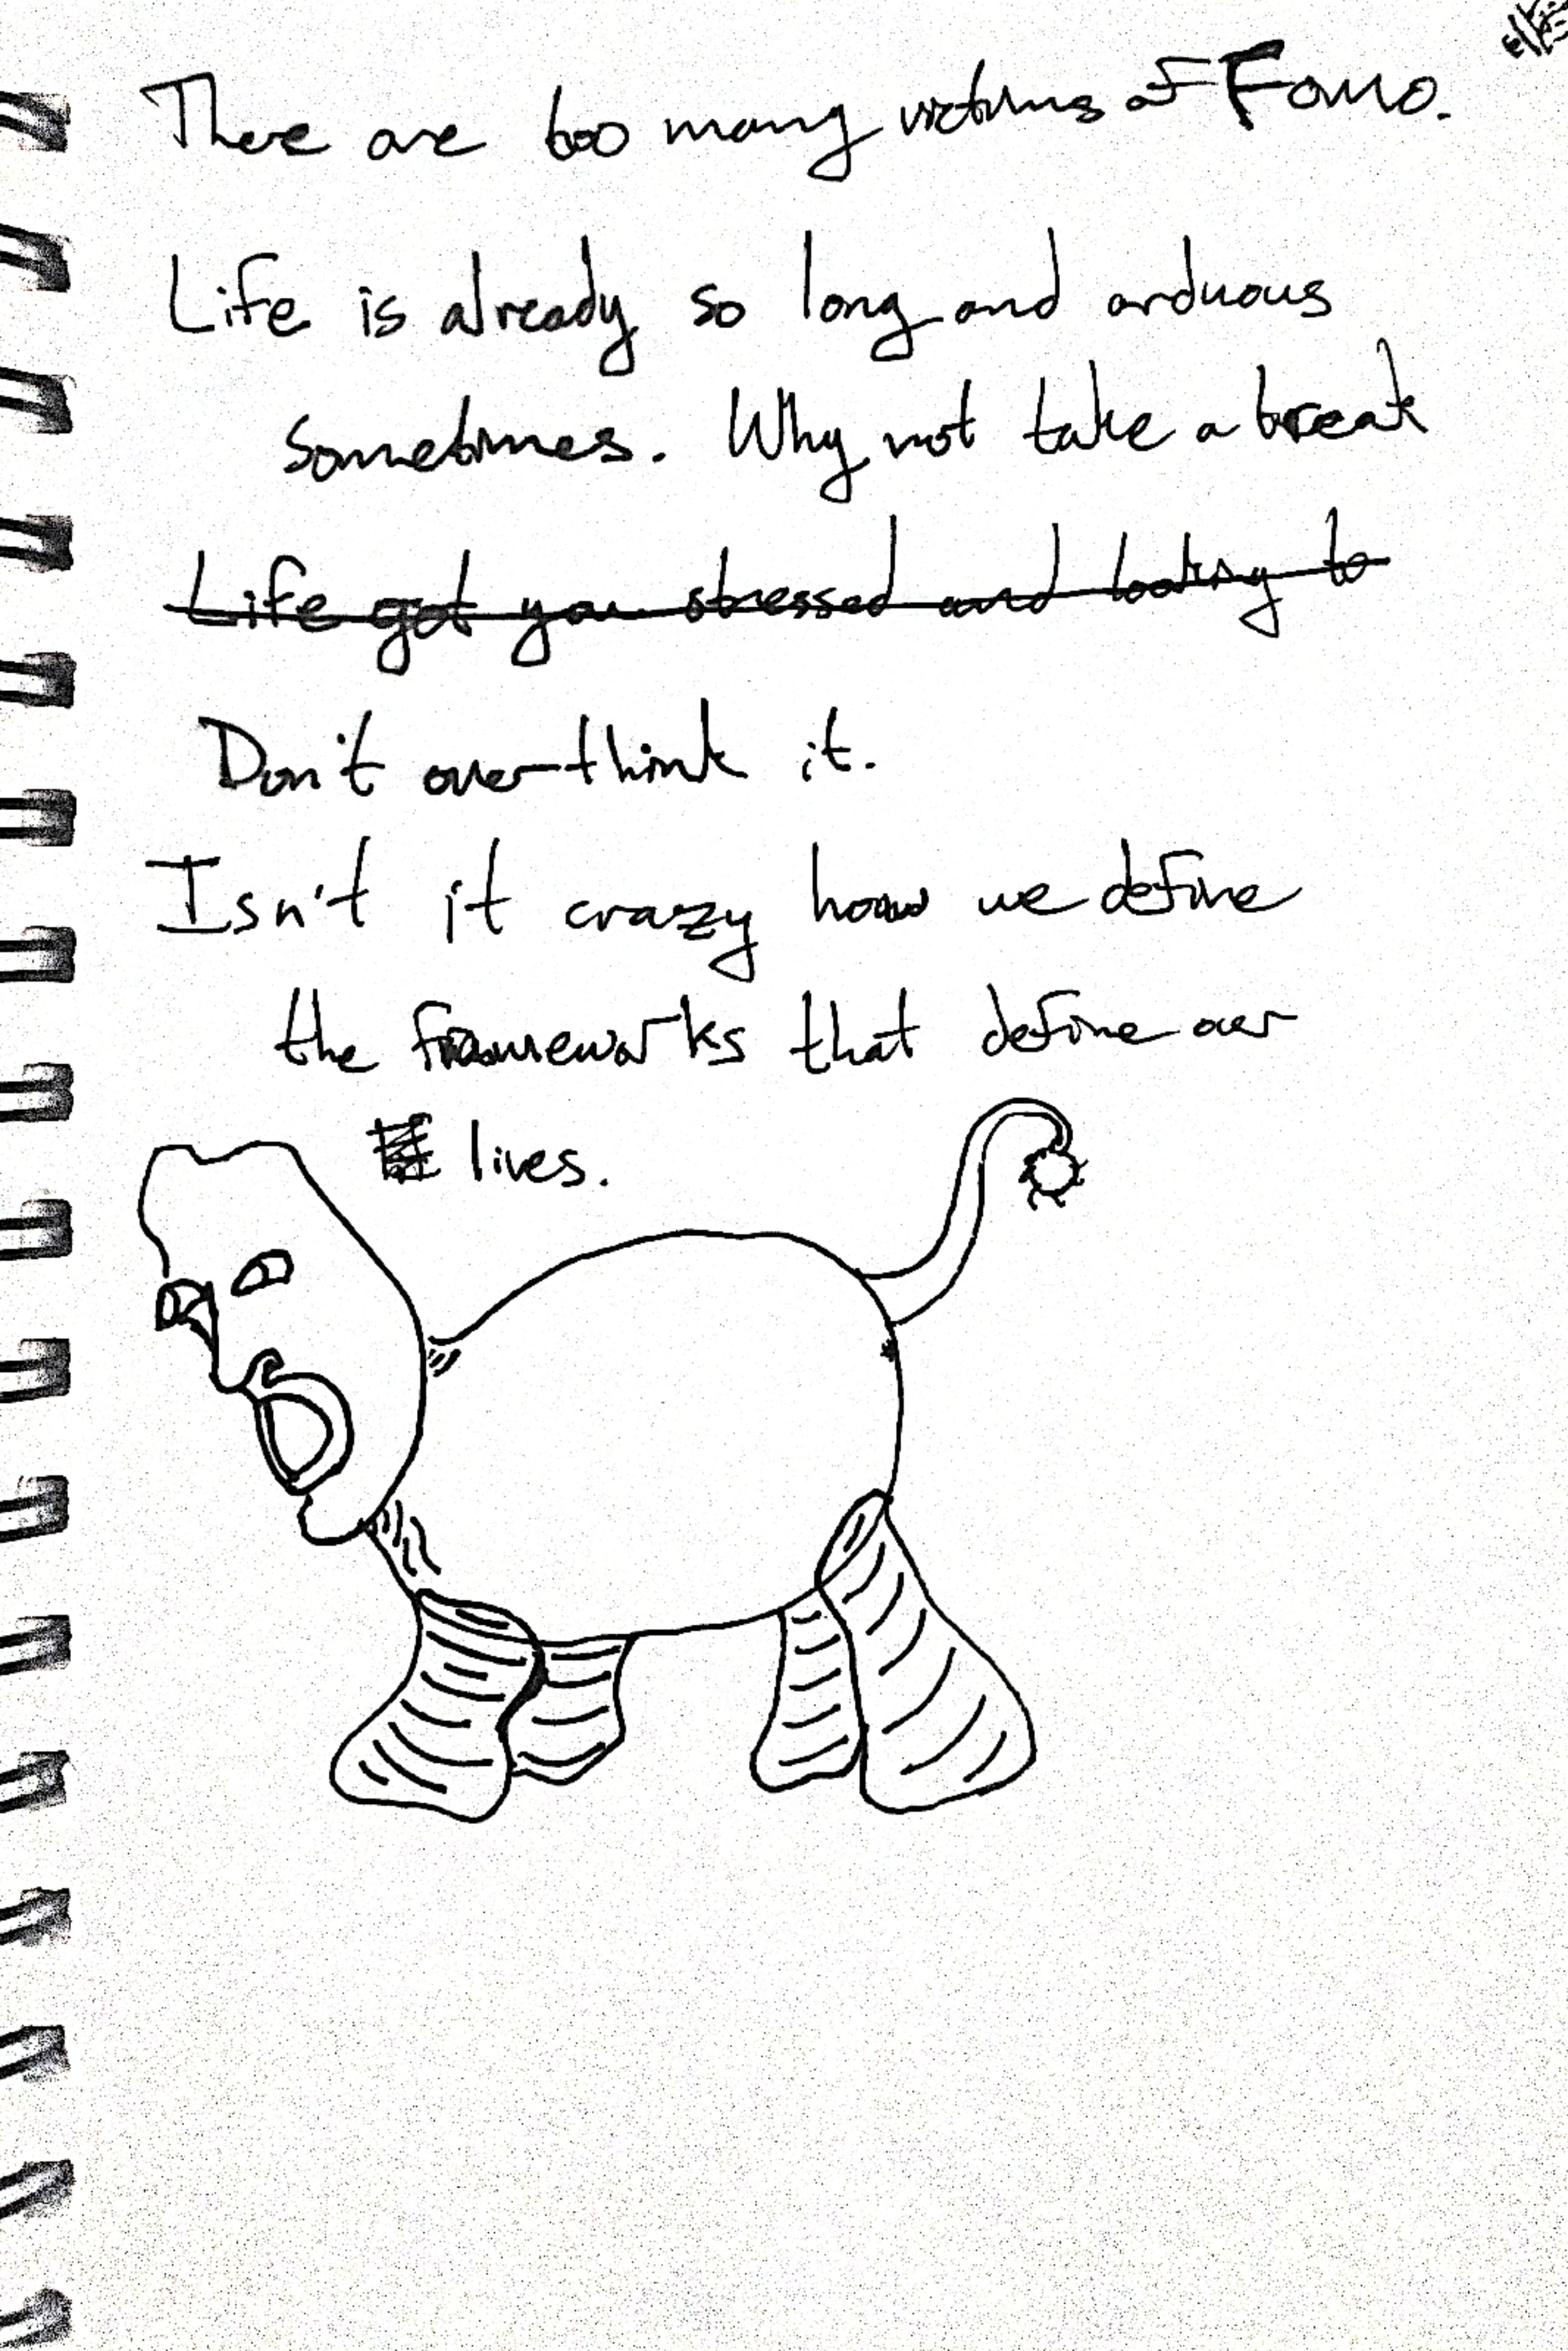 There are too many victims of Fomo.
Life is already so long and arduous
sometimes. Why not take a break
Life got you stressed and looking to
Don't over-think it.
Isn't it crazy how we define
the frameworks that define our
lives.